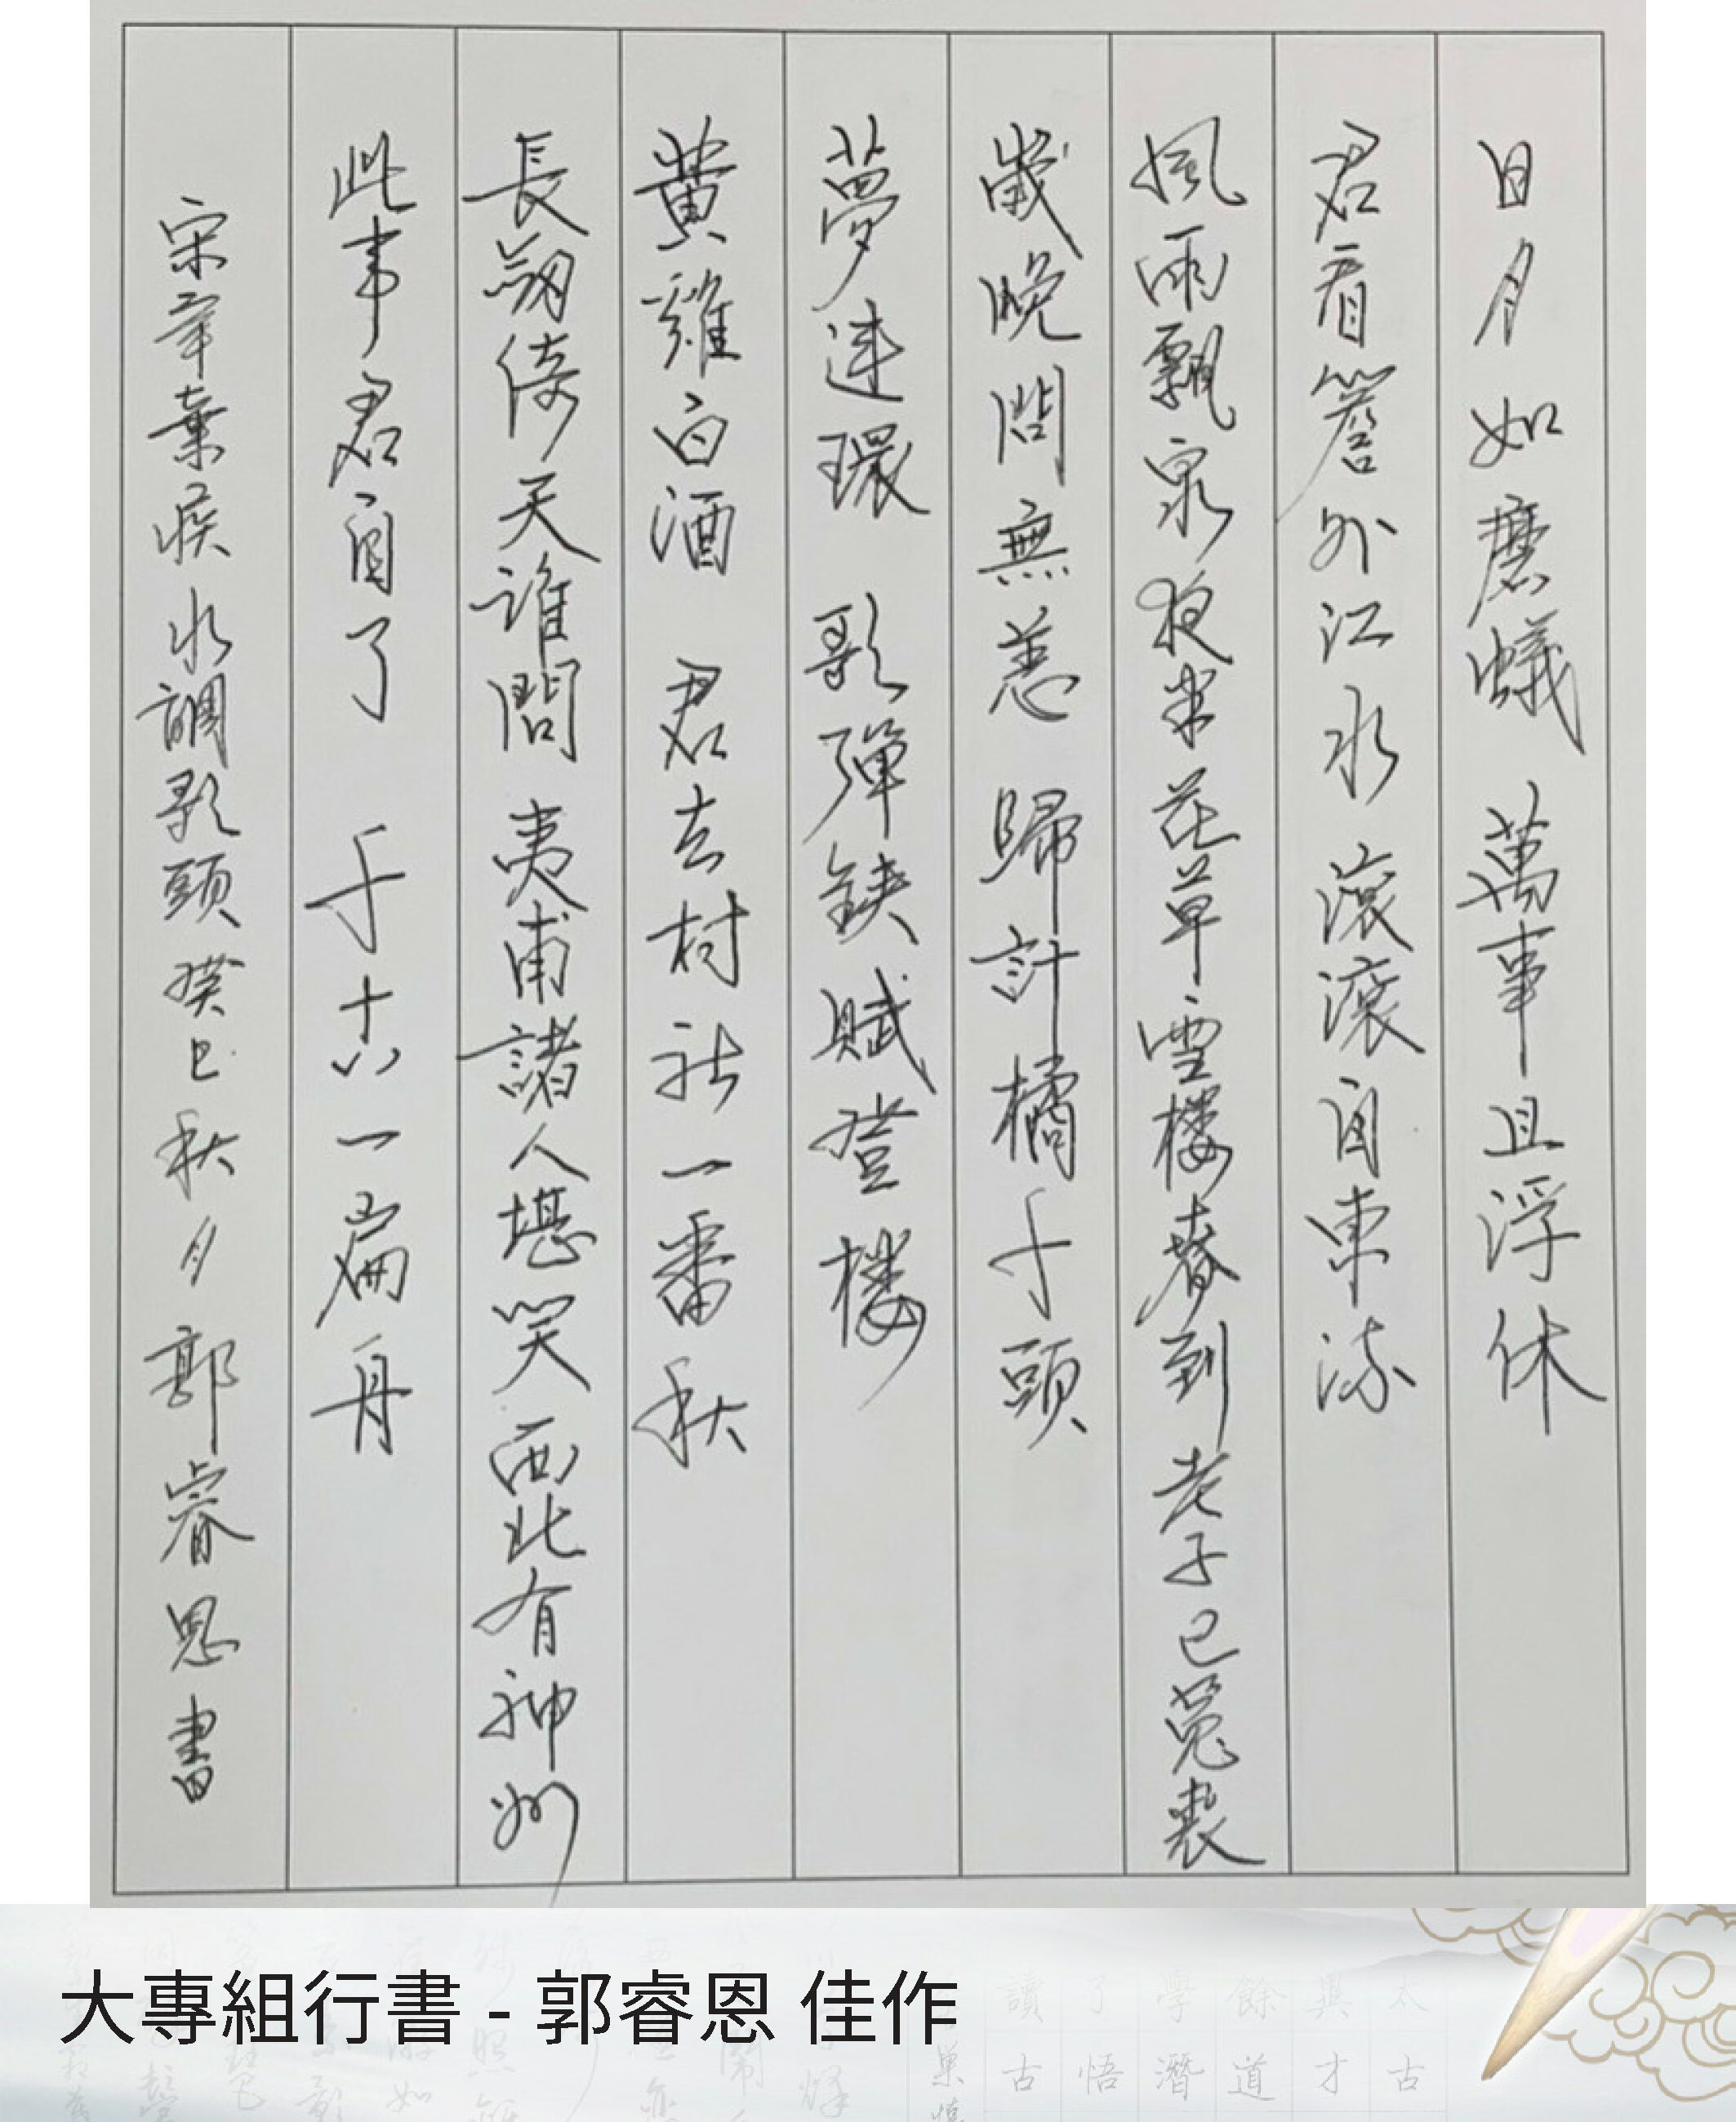 日月如磨蟻 萬事且浮休
君看簷外江水 滾滾自東流
風雨瓢泉夜半花草雪樓春到老子已菟裘
歲晚問無恙 歸計橘千頭
夢連環 歌彈鋏賦登樓
黃雞白酒 君去村社一番秋
長劍倚天誰問 夷甫諸人堪笑 西北有神州
此事君自了 千古一扁舟
宋辛棄疾水調歌頭癸巳秋月郭睿恩書
大專組行書 - 郭睿恩 佳作